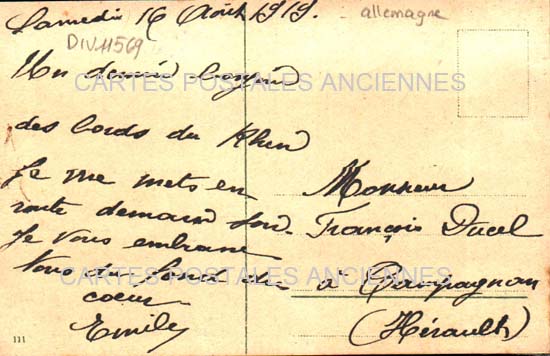 Samedi 16 Août 1919.
allemagne
DIV11569
Un dernier bonjour
CARTES POSTALES ANCIENNES
des bords du Rhin
Je me mets en
route demain soir.
Je vous embrasse
Tous du fond du
coeur
Emile
Monsieur
François Ducel
à Pompignan
(Hérault)
CARTES POSTALES ANCIENNES
111